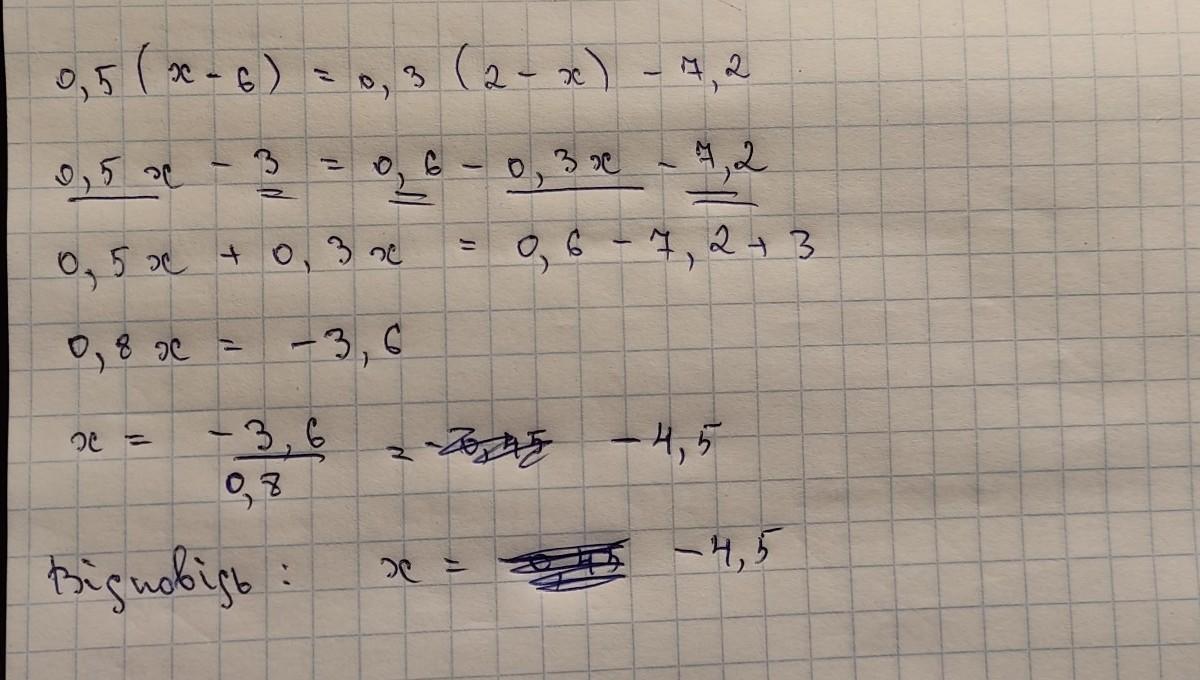 0,5(x-6) = 0,3(2-x) - 7,2
0,5x - 3 = 0,6 - 0,3x - 7,2
0,5x + 0,3x = 0,6 - 7,2 + 3
0,8x = -3,6
x = -3,6/0,8 = -4,5
Відповідь: x = -4,5